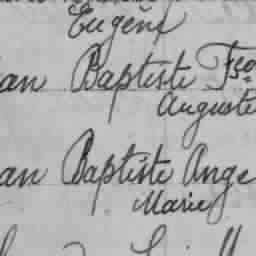 Eugène
an Baptiste Fço
Auguste
an Baptiste Ange
Marie